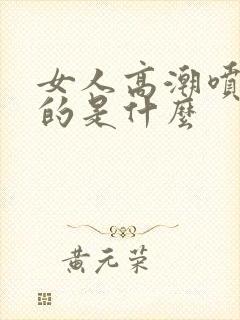 女人高潮噴
的是什麼
黃元荣